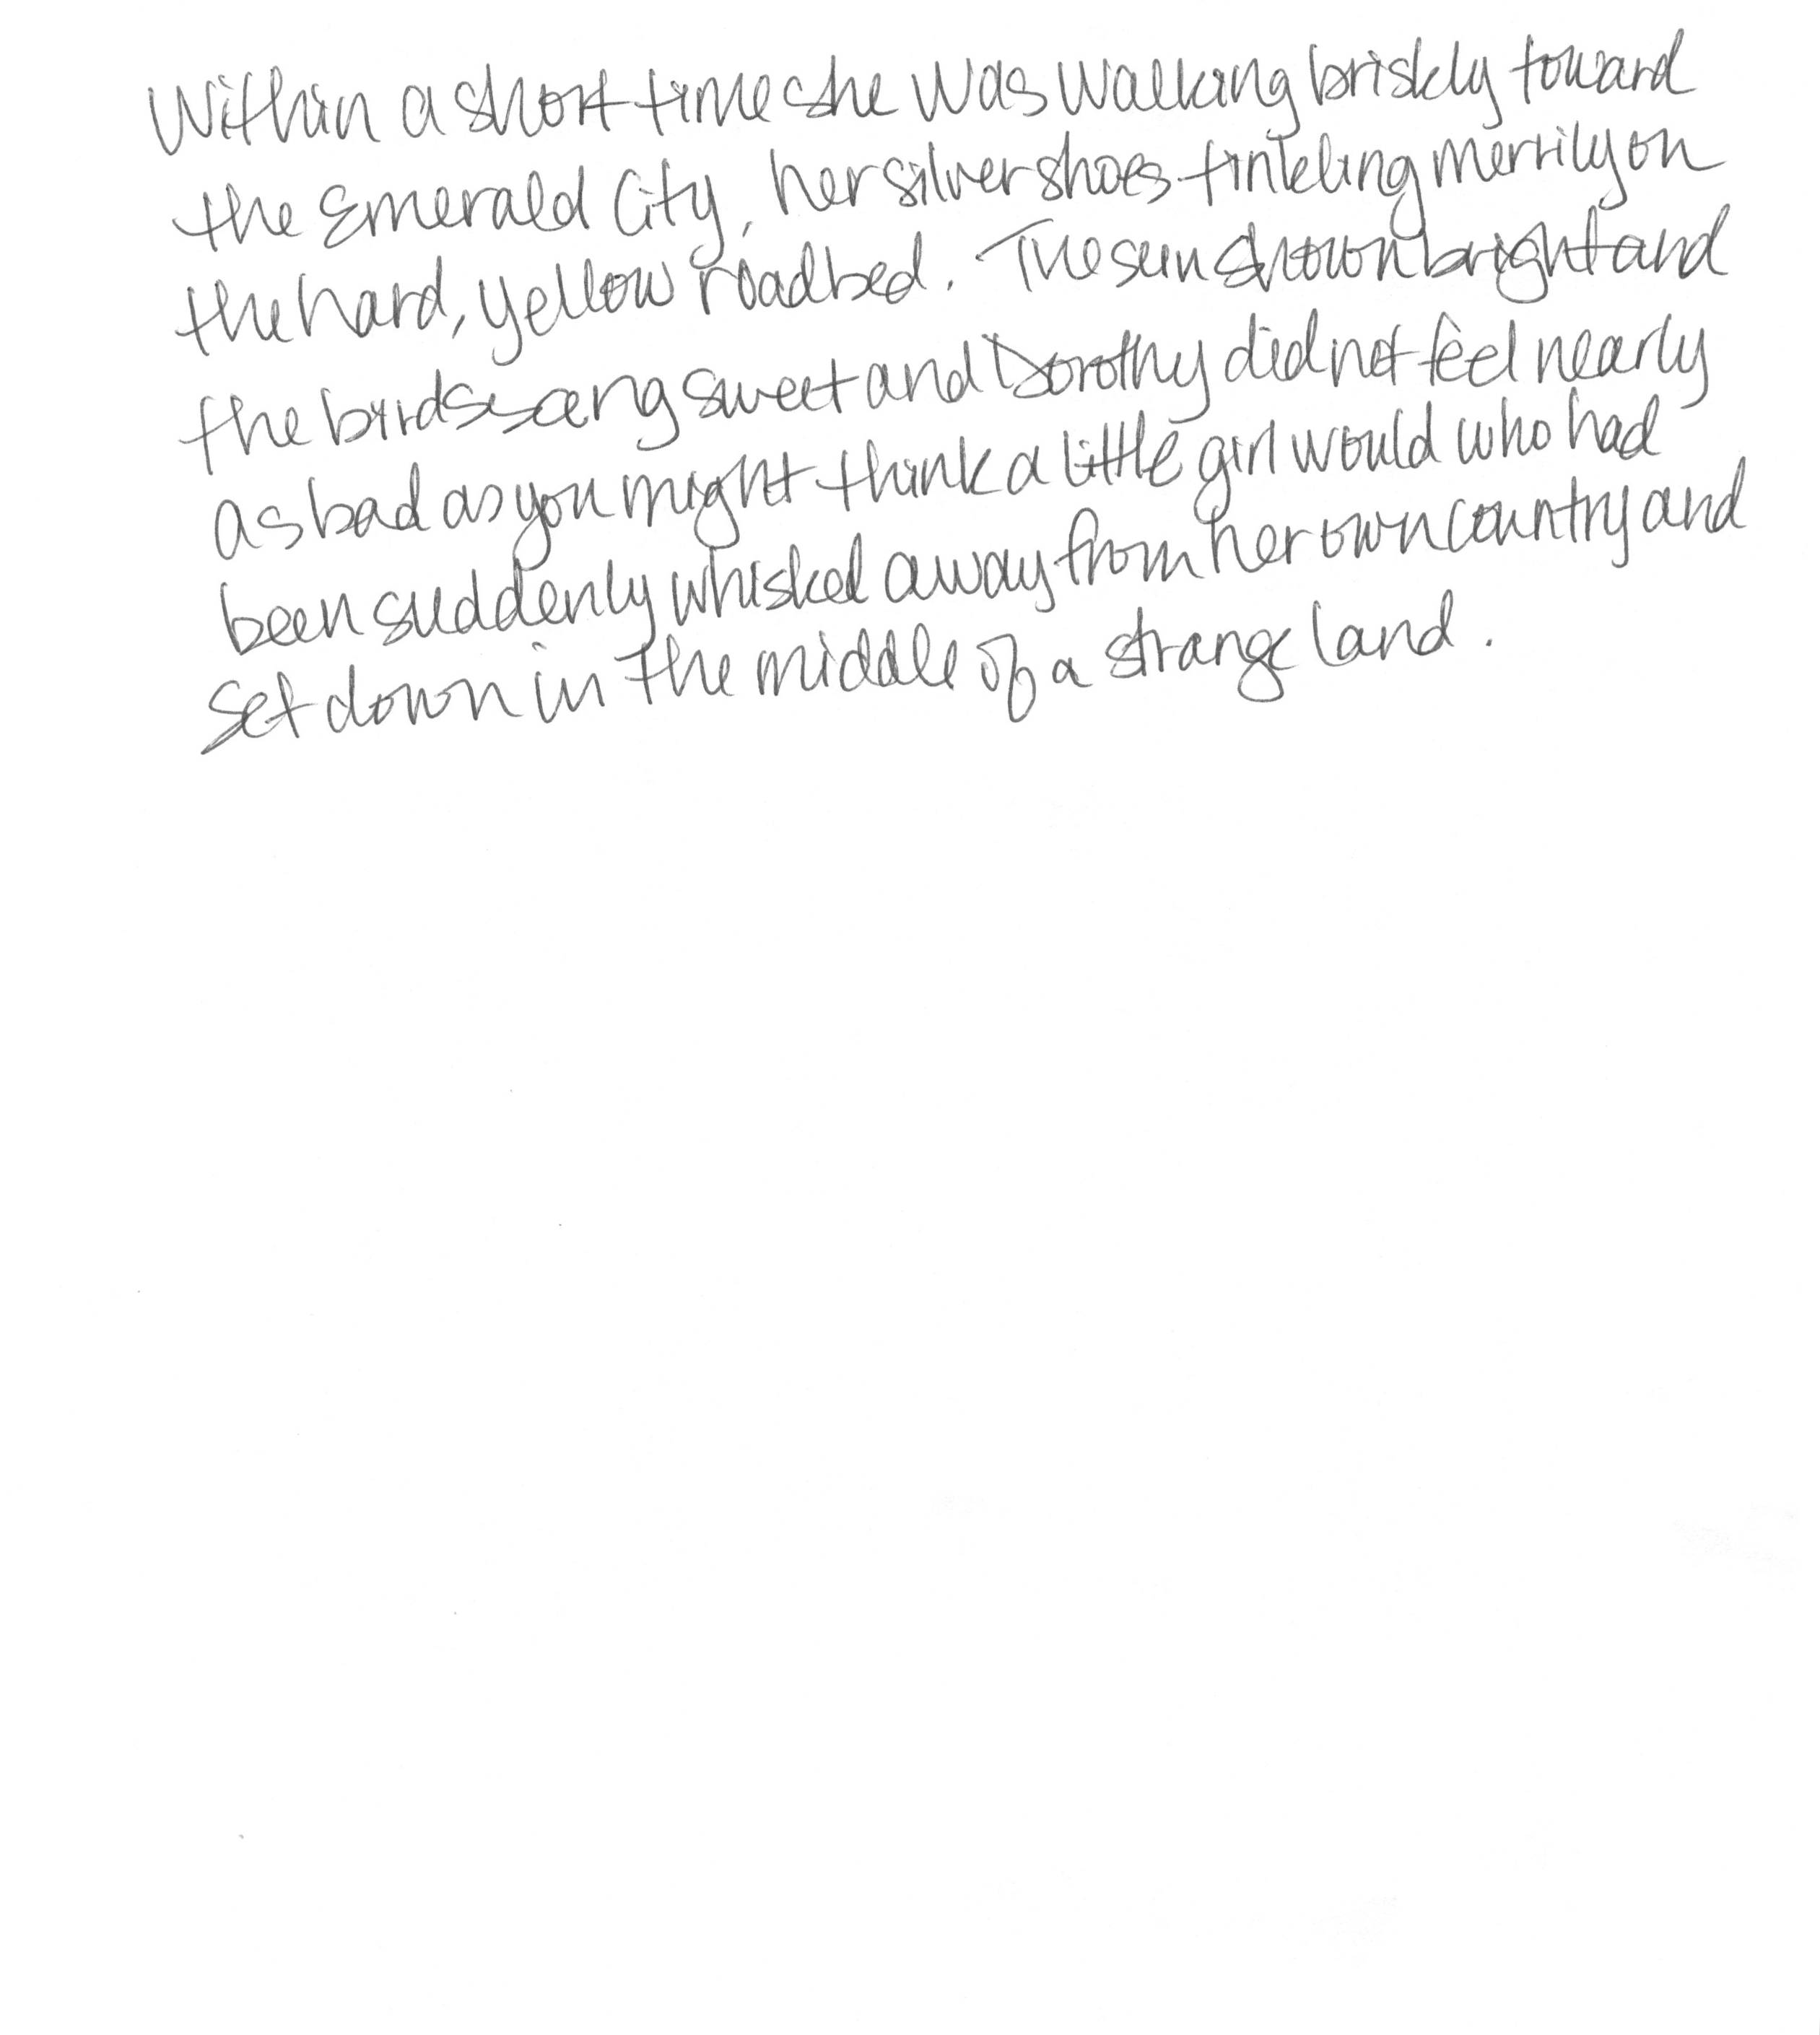 Within a short time she was walking briskly toward
the Emerald City, her silver shoes tinkling merrily on
the hard, yellow roadbed. The sun shown bright and
the birds sang sweet and Dorothy did not feel nearly
as bad as you might think a little girl would who had
been suddenly whisked away from her own country and
set down in the middle of a strange land.